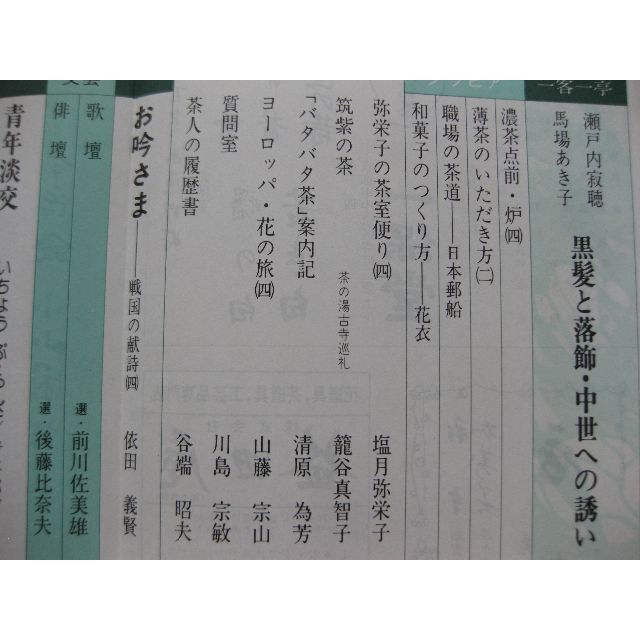 一客一亭
瀬戸内寂聴
馬場あき子
黒髪と落飾・中世への誘い
濃茶点前・炉㈣
薄茶のいただき方㈡
職場の茶道──日本郵船
和菓子のつくり方──花衣
弥栄子の茶室便り㈣
塩月弥栄子
筑紫の茶
茶の湯古寺巡礼
籠谷真智子
「バタバタ茶」案内記
清原 為芳
ヨーロッパ・花の旅㈣
山藤 宗山
質問室
川島 宗敏
茶人の履歴書
谷端 昭夫
お吟さま──戦国の献詩㈣
依田 義賢
歌壇
選・前川佐美雄
俳壇
選・後藤比奈夫
青年淡交